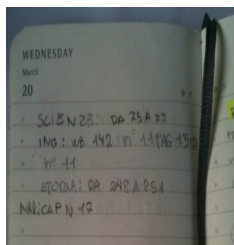 WEDNESDAY
March
20
SCIENZE: DA 23 A 27
ING: WB 142 n° 11 PAG 150
n° 11
STORIA: DA 248 A 251
N 17